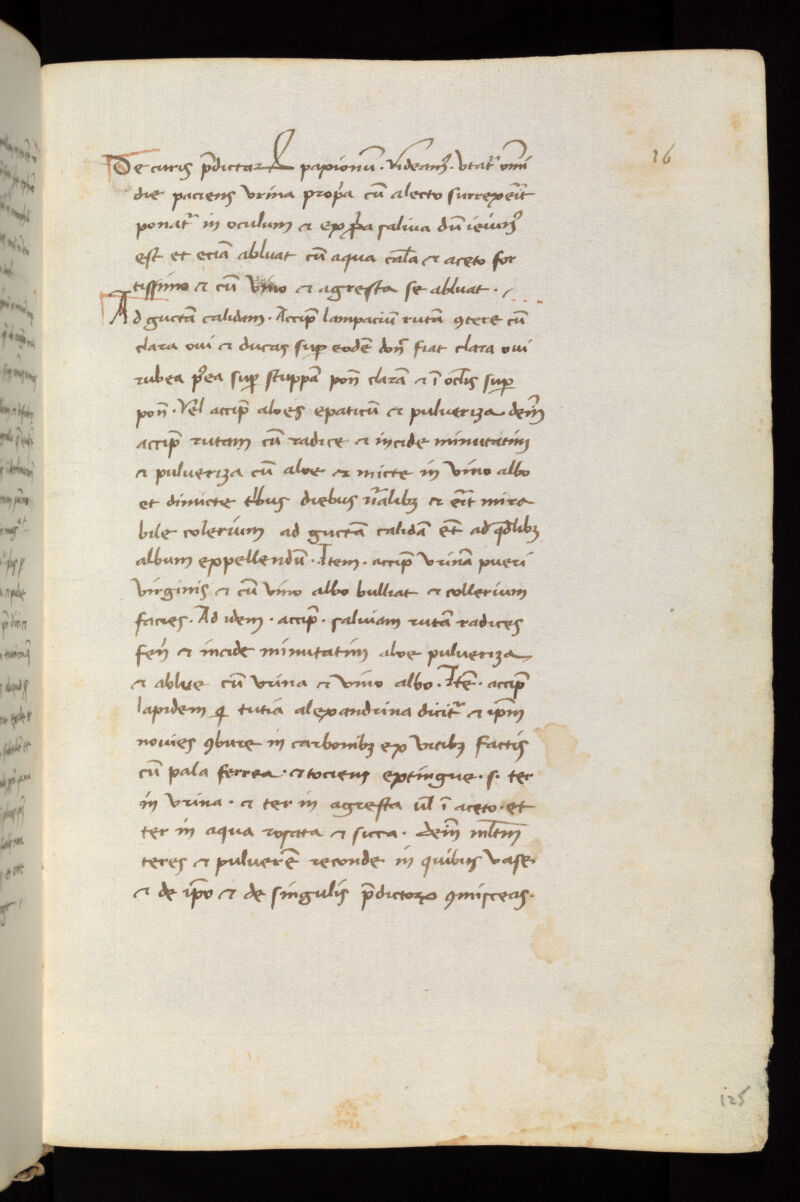 16
De curis p̄dictarꝝ papionū. videamꝰ. vtat᷑ om̄i
die paciens vrina prop̄a cū alecto surrexerīt
ponat᷑ in oculum & ex prop̄a saliua dū ieiunꝰ
est et eciā abluat cū aqua cal̄a & aceto for
tissimo & cū vino & agresta se abluat.
Ad guctā calidam. Accip̄ lampaciū rutā ꝯtere cū
clara oui & ducas sup̄ eodē don̄ fiat clara oui
rubea p̄ea sup̄ stuppā pon̄ clarā & ī ocl̄is sup̄
pon̄. Vel accip̄ aloes epaticū & pulueriza dem̄
accip̄ rutam cū radice & incide minutatim
& pulueriza cū aloe & micte in vino albo
et dimicte tͥbus diebus nr̄alibꝫ & erīt mira
bile colerium ad guctā calidā et̄ ad qd̄libꝫ
album expellendū. Item. accip̄ vrinā pueri
virginis & cū vino albo bulliat & collerium
facies. Ad idem. accip̄. saluiam rutā radices
fen̄ & incide minutatim aloe pulueriza
& ablue cū vrina & vino albo. Itē. accip̄
lapidem q̄ tutia alexandrina dicit᷑ & ip̄m
nouies ꝯbure in carbonibꝫ ex viribꝫ factis
cū pala ferrea. & tociens extingue. s. ter
in vrina. & ter in agresta ul̄ ī aceto. et
ter in aqua rosata & sicca. dem̄ ml̄tm̄
teres & puluerē reconde in quibus vase.
& de ip̄o & de singulis p̄dictorꝝ ꝯmisceas.
125